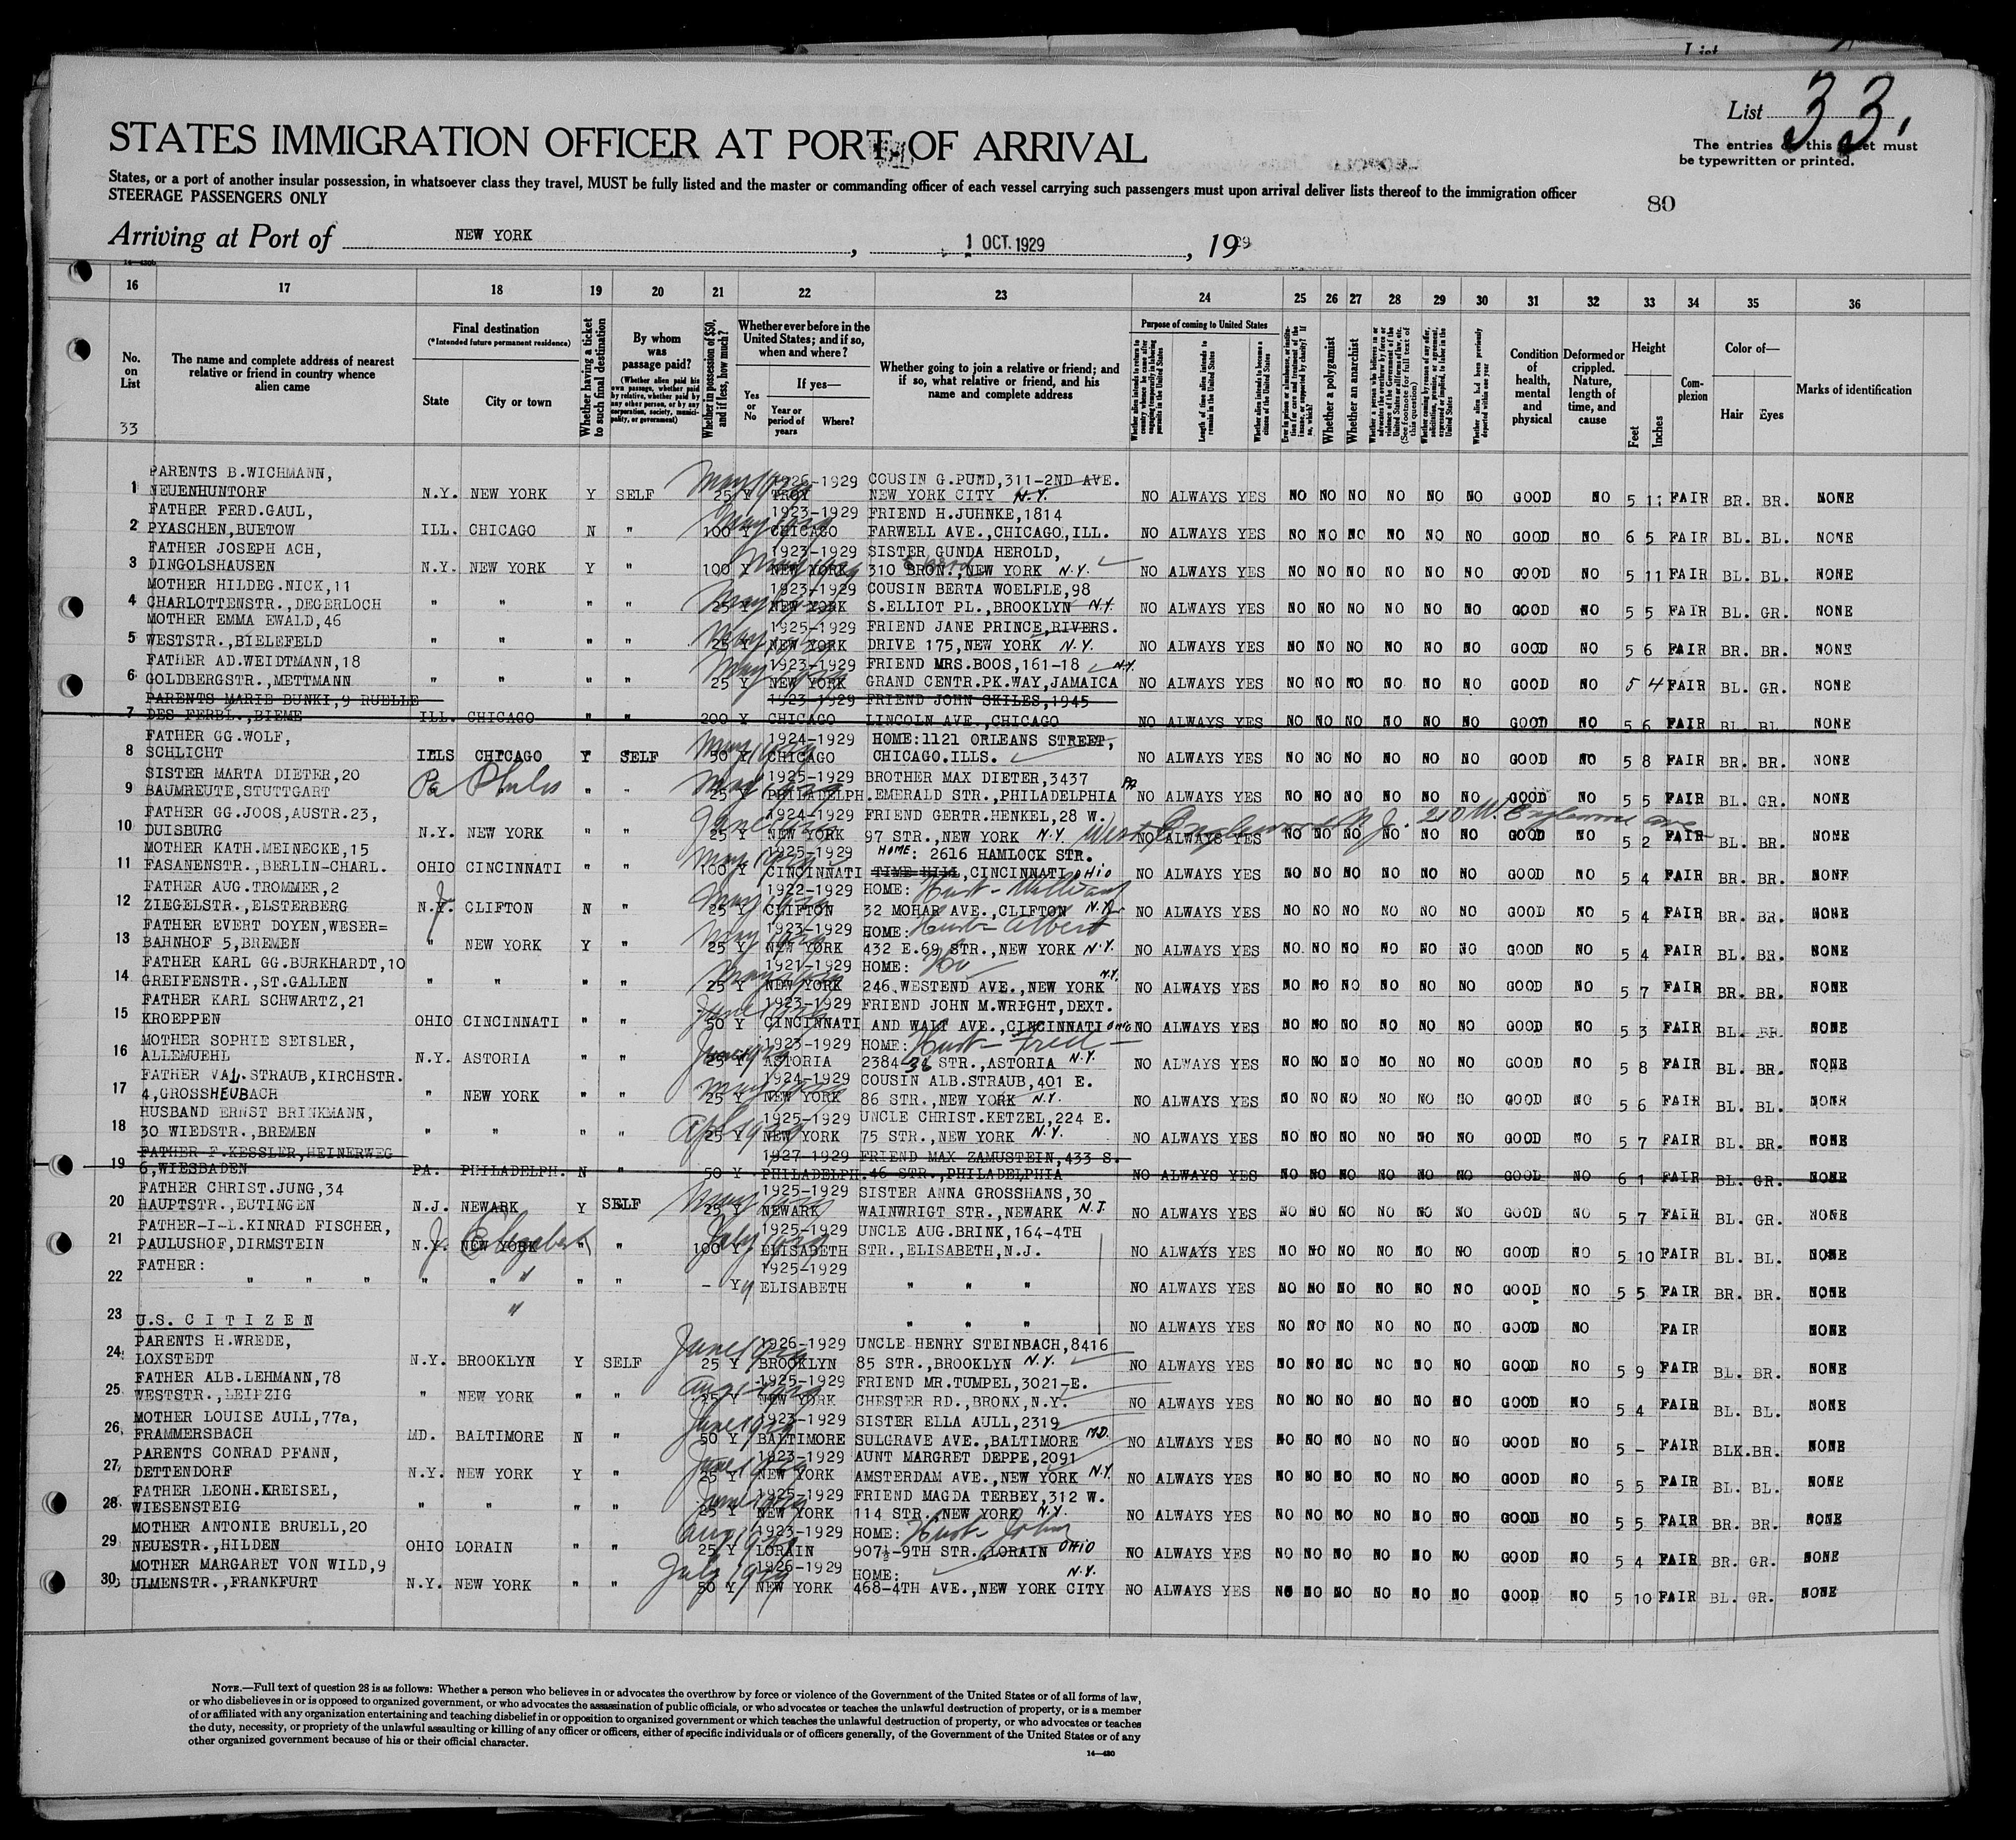 List
List 33.
STATES IMMIGRATION OFFICER AT PORT OF ARRIVAL
The entries this sheet must
be typewritten or printed.
States, or a port of another insular possession, in whatsoever class they travel, MUST be fully listed and the master or commanding officer of each vessel carrying such passengers must upon arrival deliver lists thereof to the immigration officer
STEERAGE PASSENGERS ONLY
80
Arriving at Port of NEW YORK, 1 OCT. 1929, 1929
16 17 18 19 20 21 22 23 24 25 26 27 28 29 30 31 32 33 34 35 36
No. on List
33
The name and complete address of nearest relative or friend in country whence alien came
Final destination
(*Intended future permanent residence)
State City or town
Whether having a ticket to such final destination
By whom was passage paid?
(Whether alien paid his own passage, whether paid by relative, whether paid by any other person, or by any corporation, society, municipality, or government)
Whether in possession of $50, and if less, how much?
Whether ever before in the United States; and if so, when and where?
Yes or No
If yes—
Year or period of years Where?
Whether going to join a relative or friend; and if so, what relative or friend, and his name and complete address
Purpose of coming to United States
Length of time alien intends to remain in the United States
Whether alien intends to become a citizen of the United States
Whether a polygamist
Whether an anarchist
Condition of health, mental and physical
Deformed or crippled. Nature, length of time, and cause
Height
Feet Inches
Complexion
Color of—
Hair Eyes
Marks of identification
PARENTS B.WICHMANN, 1926-1929 COUSIN G.PUND,311-2ND AVE.
1 NEUENHUNTORF N.Y. NEW YORK Y SELF 25 Y TROY NEW YORK CITY N.Y. NO ALWAYS YES NO NO NO NO NO NO GOOD NO 5 11 FAIR BR. BR. NONE
FATHER FERD.GAUL, 1923-1929 FRIEND H.JUHNKE,1814
2 PYASCHEN,BUETOW ILL. CHICAGO N " 100 Y CHICAGO FARWELL AVE.,CHICAGO,ILL. NO ALWAYS YES NO NO NO NO NO NO GOOD NO 6 5 FAIR BL. BL. NONE
FATHER JOSEPH ACH, 1923-1929 SISTER GUNDA HEROLD,
3 DINGOLSHAUSEN N.Y. NEW YORK Y " 100 Y NEW YORK 310 BRON.,NEW YORK N.Y. NO ALWAYS YES NO NO NO NO NO NO GOOD NO 5 11 FAIR BL. BL. NONE
MOTHER HILDEG.NICK,11 1923-1929 COUSIN BERTA WOELFLE,98
4 CHARLOTTENSTR.,DEGERLOCH " " " " 25 Y NEW YORK S.ELLIOT PL.,BROOKLYN N.Y. NO ALWAYS YES NO NO NO NO NO NO GOOD NO 5 5 FAIR BL. GR. NONE
MOTHER EMMA EWALD,46 1925-1929 FRIEND JANE PRINCE,RIVERS.
5 WESTSTR.,BIELEFELD " " " " 25 Y NEW YORK DRIVE 175,NEW YORK N.Y. NO ALWAYS YES NO NO NO NO NO NO GOOD NO 5 6 FAIR BR. BR. NONE
FATHER AD.WEIDTMANN,18 1923-1929 FRIEND MRS.BOOS,161-18 N.Y.
6 GOLDBERGSTR.,METTMANN " " " " 25 Y NEW YORK GRAND CENTR.PK.WAY,JAMAICA NO ALWAYS YES NO NO NO NO NO NO GOOD NO 5 4 FAIR BL. GR. NONE
PARENTS MARIE BUNKI,9 RUELLE 1923-1929 FRIEND JOHN SKILES,1945
7 DES FERBL.,BIEME ILL. CHICAGO " " 200 Y CHICAGO LINCOLN AVE.,CHICAGO NO ALWAYS YES NO NO NO NO NO NO GOOD NO 5 6 FAIR BL. BL. NONE
FATHER GG.WOLF, 1924-1929 HOME:1121 ORLEANS STREET,
8 SCHLICHT ILLS CHICAGO Y SELF 50 Y CHICAGO CHICAGO.ILLS. NO ALWAYS YES NO NO NO NO NO NO GOOD NO 5 8 FAIR BR. BR. NONE
SISTER MARTA DIETER,20 1925-1929 BROTHER MAX DIETER,3437 PA
9 BAUMREUTE,STUTTGART Pa Phila " " 25 Y PHILADELPH. EMERALD STR.,PHILADELPHIA NO ALWAYS YES NO NO NO NO NO NO GOOD NO 5 5 FAIR BL. GR. NONE
FATHER GG.JOOS,AUSTR.23, 1924-1929 FRIEND GERTR.HENKEL,28 W. West Englewood N.J. 210 W. Englewood ave
10 DUISBURG N.Y. NEW YORK " " 25 Y NEW YORK 97 STR.,NEW YORK N.Y. NO ALWAYS YES NO NO NO NO NO NO GOOD NO 5 2 FAIR BL. BR. NONE
MOTHER KATH.MEINECKE,15 1925-1929 HOME: 2616 HAMLOCK STR.
11 FASANENSTR.,BERLIN-CHARL. OHIO CINCINNATI " " 100 Y CINCINNATI TIME HILL,CINCINNATI OHIO NO ALWAYS YES NO NO NO NO NO NO GOOD NO 5 4 FAIR BR. BR. NONE
FATHER AUG.TROMMER,2 1922-1929 HOME: Husb- William
12 ZIEGELSTR.,ELSTERBERG N.J. CLIFTON N " 25 Y CLIFTON 32 MOHAR AVE.,CLIFTON NO ALWAYS YES NO NO NO NO NO NO GOOD NO 5 4 FAIR BR. BR. NONE
FATHER EVERT DOYEN,WESER= 1923-1929 HOME: Husb- Albert
13 BAHNHOF 5,BREMEN " NEW YORK Y " 25 Y NEW YORK 432 E.69 STR.,NEW YORK N.Y. NO ALWAYS YES NO NO NO NO NO NO GOOD NO 5 4 FAIR BL. BR. NONE
FATHER KARL GG.BURKHARDT,10 1921-1929 HOME: N.Y.
14 GREIFENSTR.,ST.GALLEN " " " " 25 Y NEW YORK 246.WESTEND AVE.,NEW YORK NO ALWAYS YES NO NO NO NO NO NO GOOD NO 5 7 FAIR BR. BR. NONE
FATHER KARL SCHWARTZ,21 1923-1929 FRIEND JOHN M.WRIGHT,DEXT.
15 KROEPPEN OHIO CINCINNATI " " 50 Y CINCINNATI AND WAIT AVE.,CINCINNATI OHIO NO ALWAYS YES NO NO NO NO NO NO GOOD NO 5 3 FAIR BL. BR. NONE
MOTHER SOPHIE SEISLER, 1923-1929 HOME: Husb- Fred
16 ALLEMUEHL N.Y. ASTORIA " " 25 Y ASTORIA 2384-36 STR.,ASTORIA N.Y. NO ALWAYS YES NO NO NO NO NO NO GOOD NO 5 8 FAIR BL. BR. NONE
FATHER VAL.STRAUB,KIRCHSTR. 1924-1929 COUSIN ALB.STRAUB,401 E.
17 4,GROSSHEUBACH " NEW YORK " " 25 Y NEW YORK 86 STR.,NEW YORK N.Y. NO ALWAYS YES NO NO NO NO NO NO GOOD NO 5 6 FAIR BL. BL. NONE
HUSBAND ERNST BRINKMANN, 1925-1929 UNCLE CHRIST.KETZEL,224 E.
18 30 WIEDSTR.,BREMEN " " " " 25 Y NEW YORK 75 STR.,NEW YORK N.Y. NO ALWAYS YES NO NO NO NO NO NO GOOD NO 5 7 FAIR BL. BR. NONE
FATHER F.KESSLER,HEINERWEG 1927-1929 FRIEND MAX ZAMUSTEIN,433 S.
19 6,WIESBADEN PA. PHILADELPH. N " 50 Y PHILADELPH. 46 STR.,PHILADELPHIA NO ALWAYS YES NO NO NO NO NO NO GOOD NO 6 1 FAIR BL. GR. NONE
FATHER CHRIST.JUNG,34 1925-1929 SISTER ANNA GROSSHANS,30
20 HAUPTSTR.,EUTINGEN N.J. NEWARK Y SELF 25 Y NEWARK WAINWRIGT STR.,NEWARK N.J. NO ALWAYS YES NO NO NO NO NO NO GOOD NO 5 7 FAIR BL. GR. NONE
FATHER-I-L.KINRAD FISCHER, 1925-1929 UNCLE AUG.BRINK,164-4TH
21 PAULUSHOF,DIRMSTEIN N.J. NEW YORK Elizabeth " " 100 Y ELISABETH STR.,ELISABETH,N.J. NO ALWAYS YES NO NO NO NO NO NO GOOD NO 5 10 FAIR BL. BL. NONE
FATHER: 1925-1929
22 " " " " " " " - Y ELISABETH " " " NO ALWAYS YES NO NO NO NO NO NO GOOD NO 5 5 FAIR BR. BR. NONE
23 U.S. CITIZEN " " " " NO ALWAYS YES NO NO NO NO NO NO GOOD NO FAIR NONE
PARENTS H.WREDE, 1926-1929 UNCLE HENRY STEINBACH,8416
24 LOXSTEDT N.Y. BROOKLYN Y SELF 25 Y BROOKLYN 85 STR.,BROOKLYN N.Y. NO ALWAYS YES NO NO NO NO NO NO GOOD NO 5 9 FAIR BL. BR. NONE
FATHER ALB.LEHMANN,78 1925-1929 FRIEND MR.TUMPEL,3021-E.
25 WESTSTR.,LEIPZIG " NEW YORK " " 25 Y NEW YORK CHESTER RD.,BRONX,N.Y. NO ALWAYS YES NO NO NO NO NO NO GOOD NO 5 4 FAIR BL. BL. NONE
MOTHER LOUISE AULL,77a, 1923-1929 SISTER ELLA AULL,2319
26 FRAMMERSBACH MD. BALTIMORE N " 50 Y BALTIMORE SULGRAVE AVE.,BALTIMORE MD. NO ALWAYS YES NO NO NO NO NO NO GOOD NO 5 - FAIR BLK.BR. NONE
PARENTS CONRAD PFANN, 1923-1929 AUNT MARGRET DEPPE,2091
27 DETTENDORF N.Y. NEW YORK Y " 25 Y NEW YORK AMSTERDAM AVE.,NEW YORK N.Y. NO ALWAYS YES NO NO NO NO NO NO GOOD NO 5 5 FAIR BL. BL. NONE
FATHER LEONH.KREISEL, 1925-1929 FRIEND MAGDA TERBEY,312 W.
28 WIESENSTEIG " " " " 25 Y NEW YORK 114 STR.,NEW YORK N.Y. NO ALWAYS YES NO NO NO NO NO NO GOOD NO 5 5 FAIR BR. BR. NONE
MOTHER ANTONIE BRUELL,20 1923-1929 HOME: Husb- John
29 NEUESTR.,HILDEN OHIO LORAIN " " 25 Y LORAIN 907½-9TH STR.,LORAIN OHIO NO ALWAYS YES NO NO NO NO NO NO GOOD NO 5 4 FAIR BR. GR. NONE
MOTHER MARGARET VON WILD,9 1926-1929 HOME: N.Y.
30 ULMENSTR.,FRANKFURT N.Y. NEW YORK " " 50 Y NEW YORK 468-4TH AVE.,NEW YORK CITY NO ALWAYS YES NO NO NO NO NO NO GOOD NO 5 10 FAIR BL. GR. NONE
NOTE.—Full text of question 28 is as follows: Whether a person who believes in or advocates the overthrow by force or violence of the Government of the United States or of all forms of law,
or who disbelieves in or is opposed to organized government, or who advocates the assassination of public officials, or who advocates or teaches the unlawful destruction of property, or is a member
of or affiliated with any organization entertaining and teaching disbelief in or opposition to organized government or which teaches the unlawful destruction of property, or who advocates or teaches
the duty, necessity, or propriety of the unlawful assaulting or killing of any officer or officers, either of specific individuals or of officers generally, of the Government of the United States or of any
other organized government because of his or their official character.
14—430